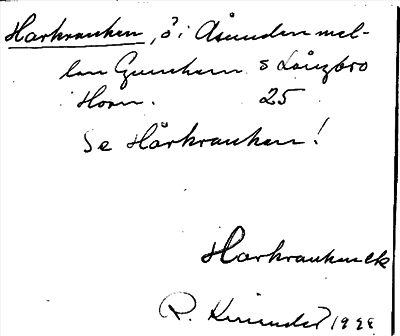 Harkranken, ö i Åsunden mel-
lan Gunhem s Långbro
Horn. 25
Se Hårkranken!
Harkranken ck
R. 1928